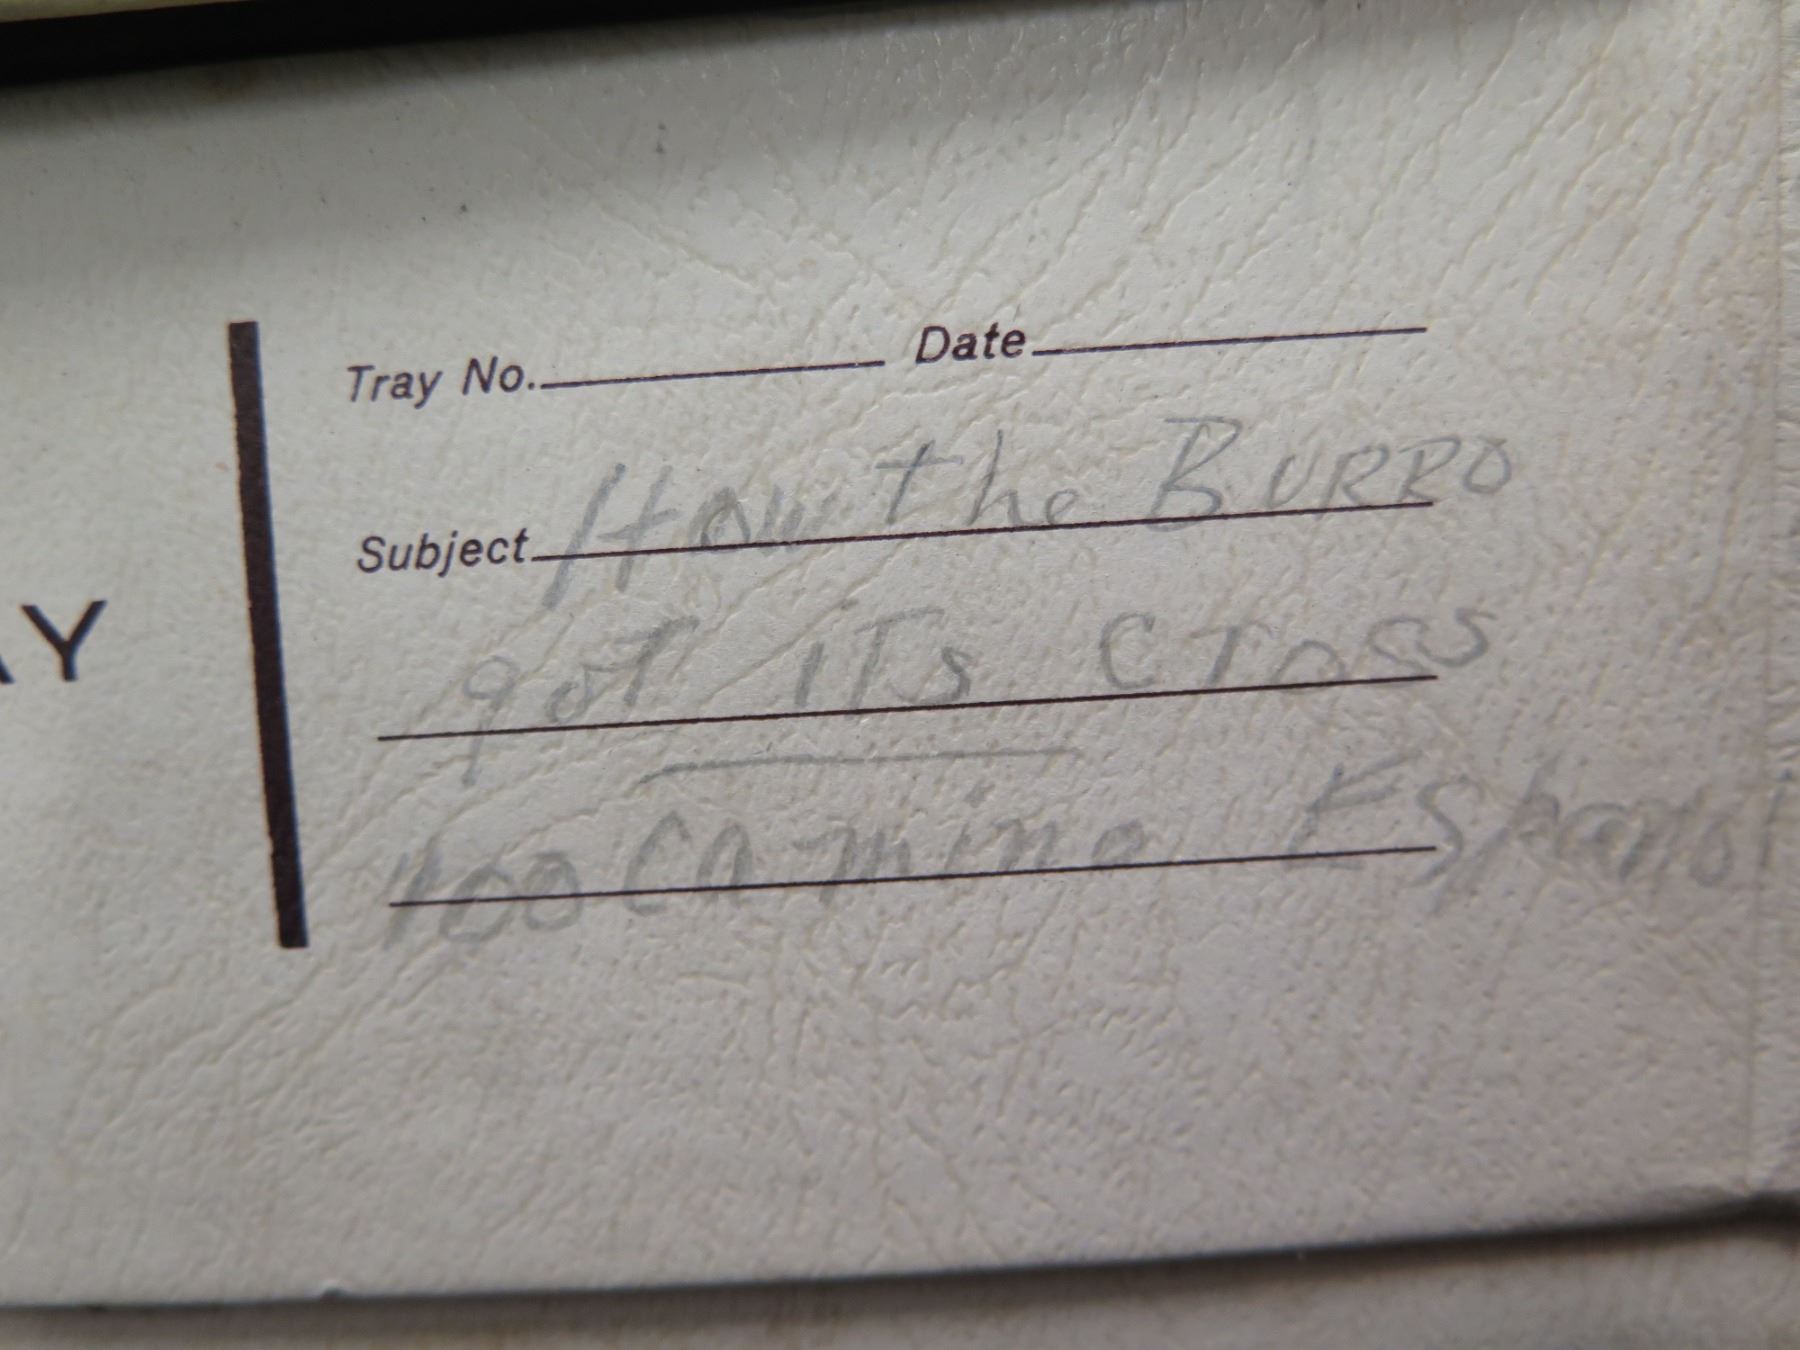 Tray No. Date
Subject How the BURRO
got iTs cross
400 Camino Espanol
AY